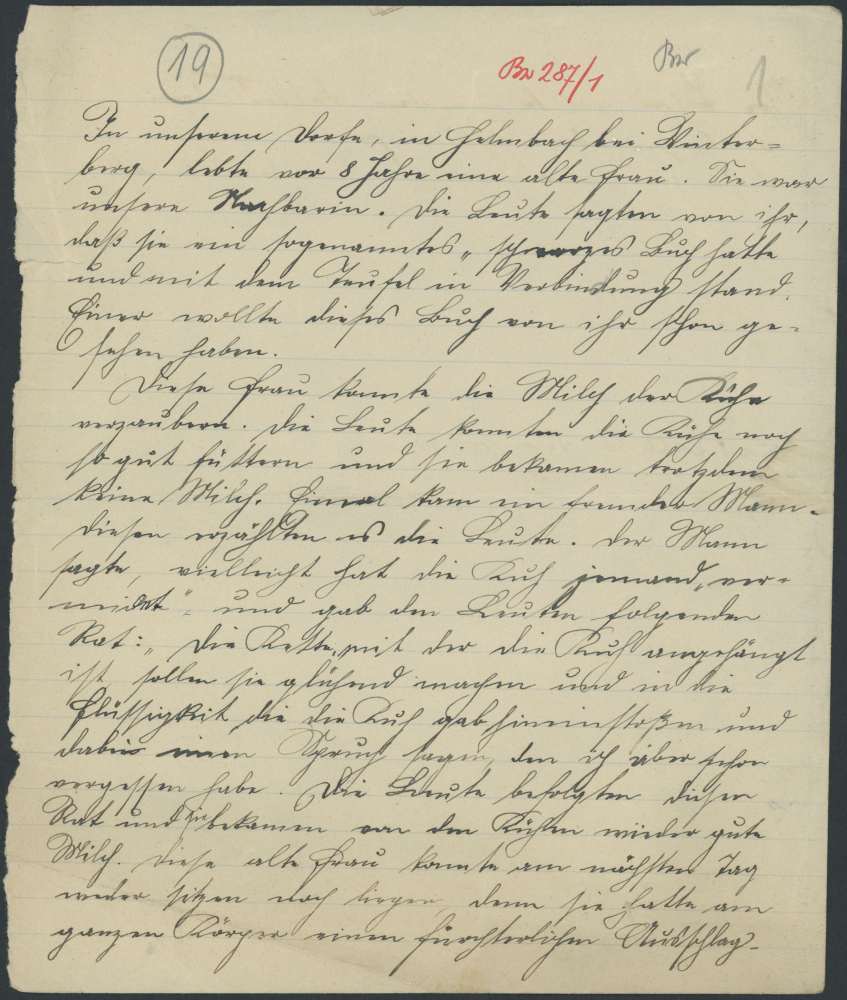 19
Bw 287/1
Bw
1
In unserem Dorfe, in Helmbach bei Winter=
berg, lebte vor 8 Jahre eine alte Frau. Sie war
unsere Nachbarin. Die Leute sagten von ihr,
daß sie ein sogenanntes „schwarzes Buch hatte
und mit dem Teufel in Verbindung stand.
Einer wollte dieses Buch von ihr schon ge=
sehen haben.
Diese Frau konnte die Milch der Kühe
verzaubern. Die Leute konnten die Kühe noch
so gut füttern und sie bekamen trotzdem
keine Milch. Einmal kam ein fremder Mann.
Diesen erzählten es die Leute. Der Mann
sagte, vielleicht hat die Kuh jemand „ver=
" und gab den Leuten folgenden
Rat: „Die Kette, mit der die Kuh angehängt
ist sollen sie glühend machen und in die
Flüssigkeit die die Kuh gab hineinstoßen und
dabei einen Spruch sagen, den ich aber schon
vergessen habe. Die Leute befolgten diesen
Rat und sie bekamen von den Kühen wieder gute
Milch. Diese alte Frau konnte am nächsten Tag
weder sitzen noch liegen, denn sie hatte am
ganzen Körper einen fürchterlichen Ausschlag.